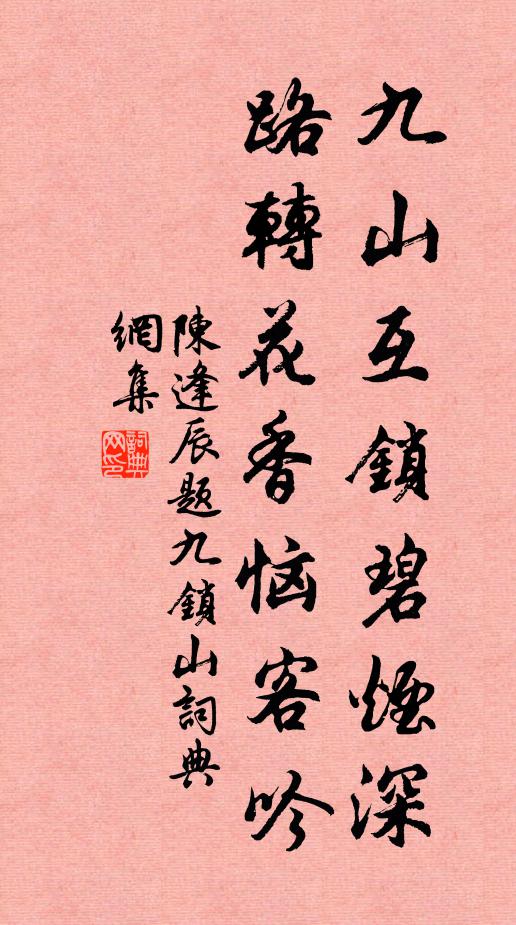 九山互鎖碧煙深
路轉花香恼客吟
陳逢辰题九鎖山詞典
網集
詞典
网印